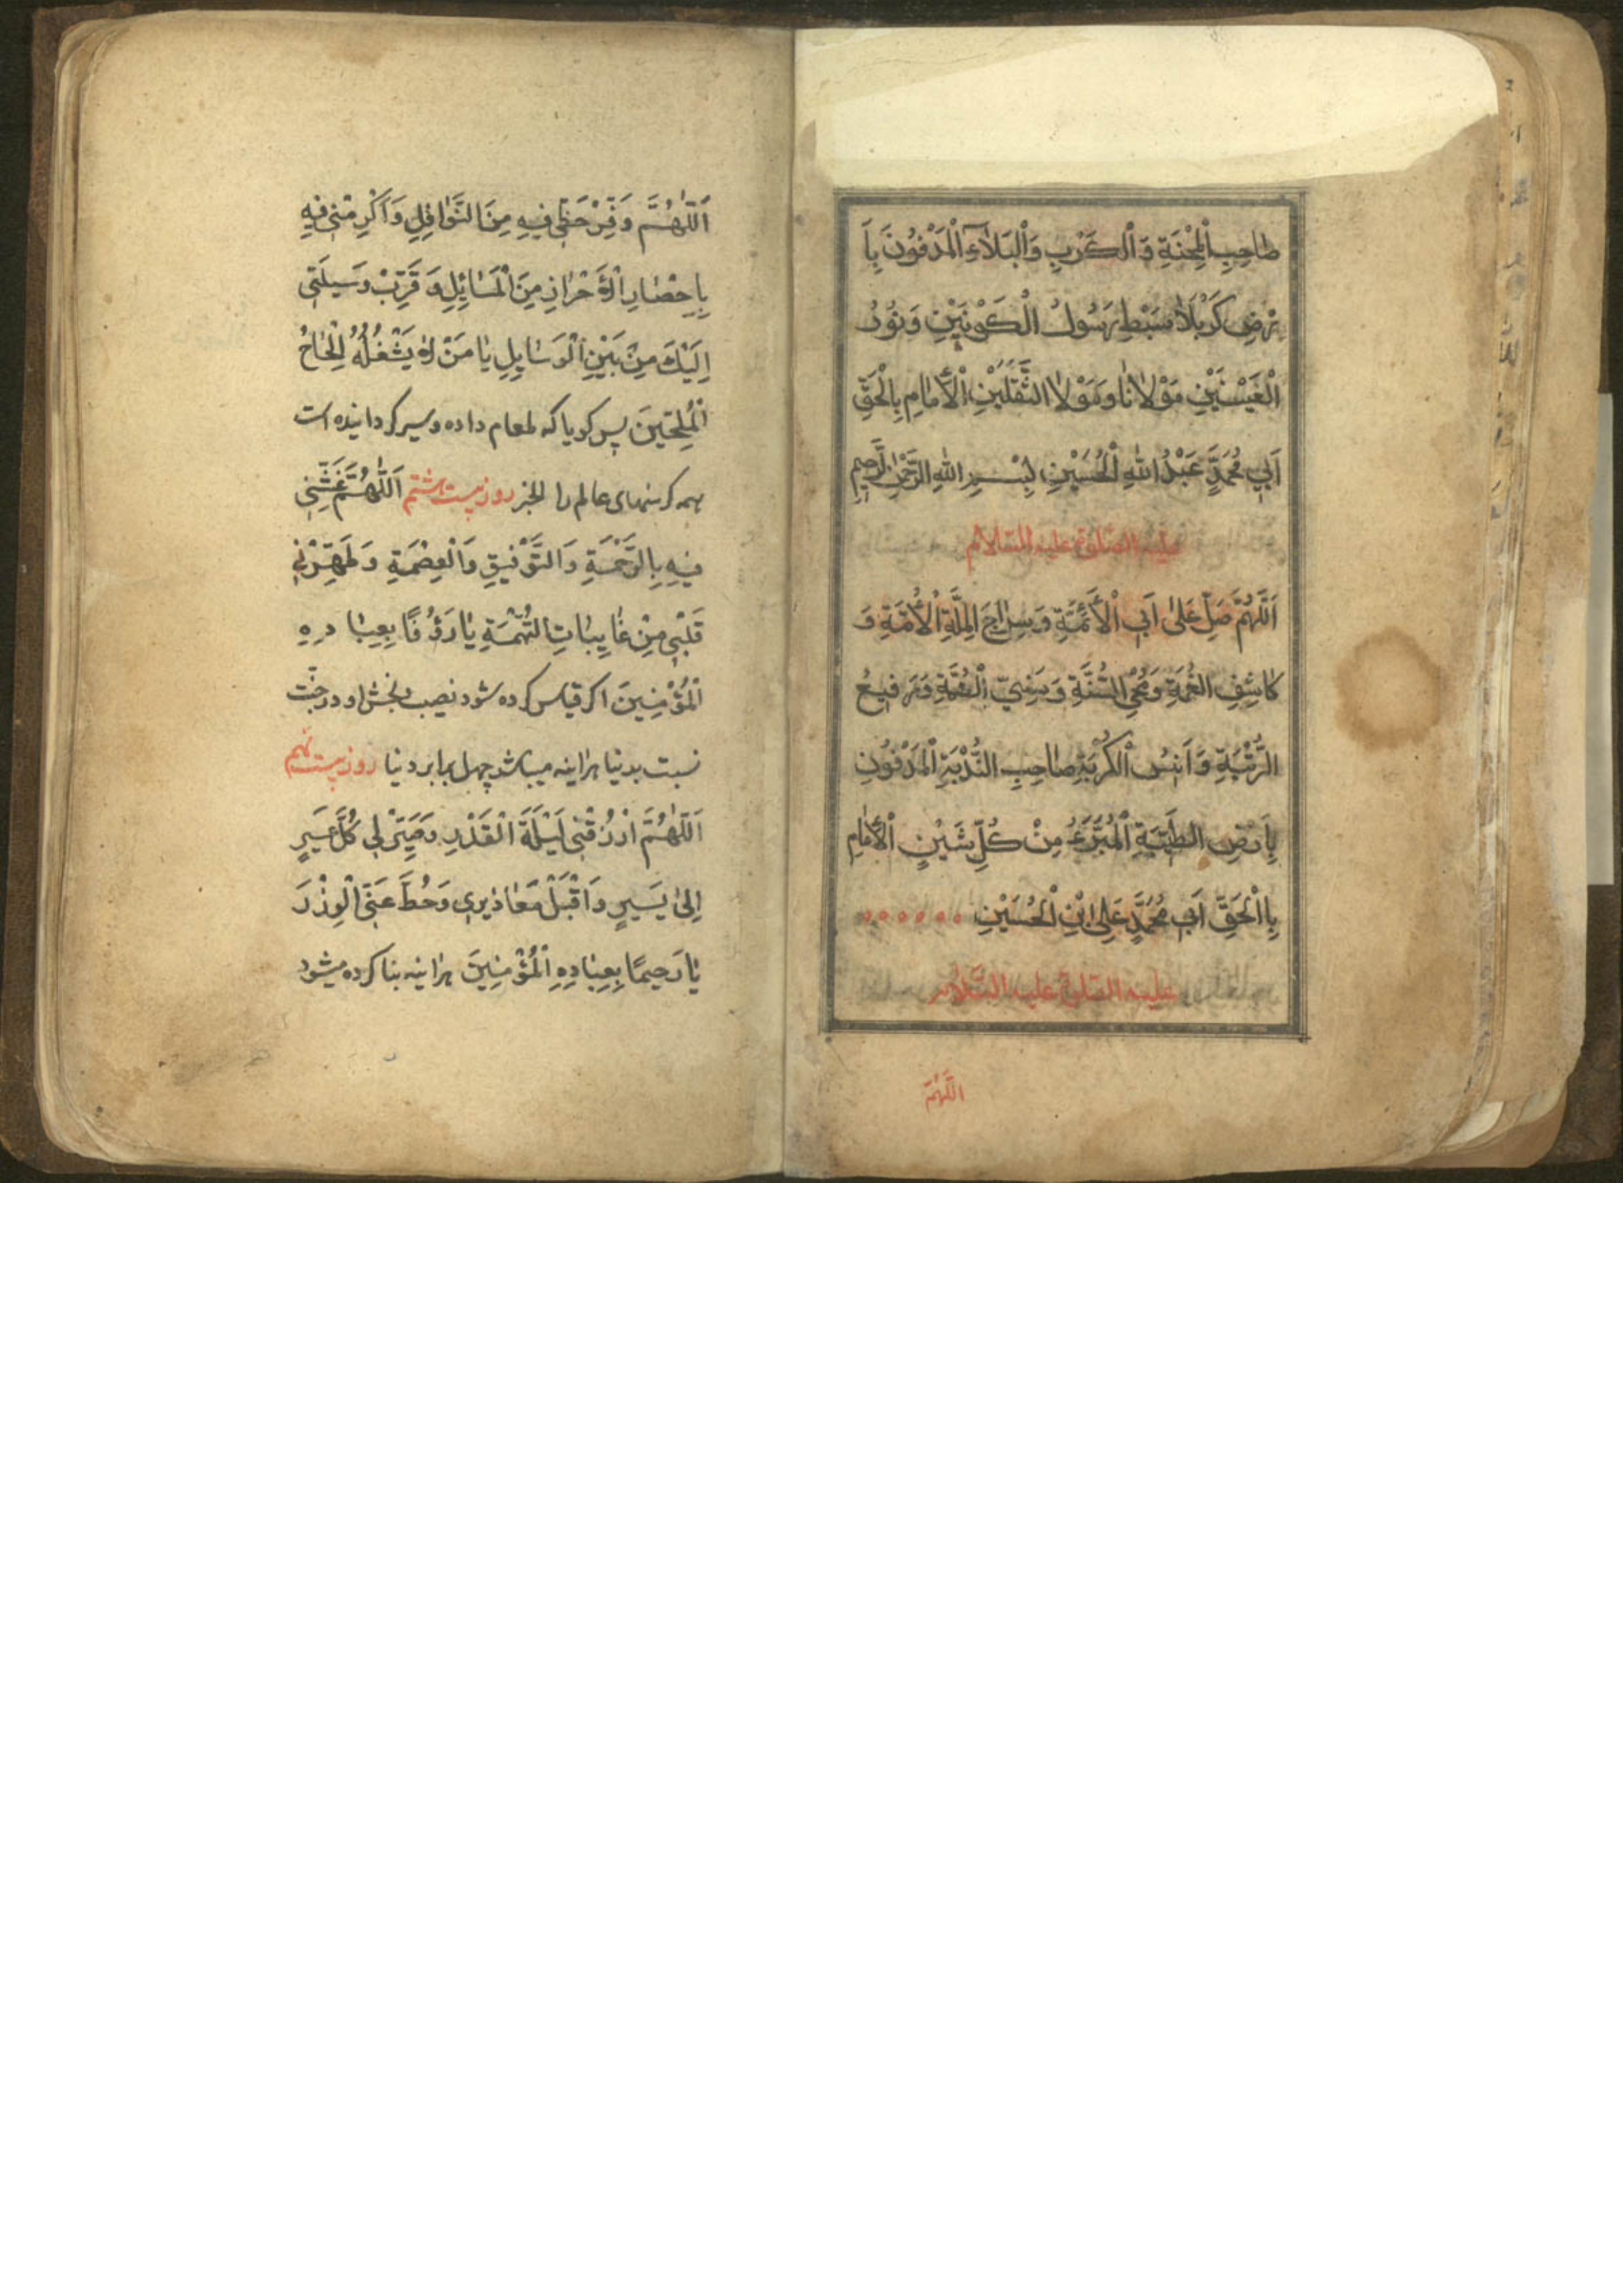 صٰاحِبِ الْمِحْنَةِ وَ الْكَرْبِ وَالْبَلَآءِ الْمَدْفُونَ بِاَ
رْضِ كَرْبَلَاٰ سَبْطِ رَسُولُ الْكَوْنَيْنِ وَ نُورُ
الْعَيْنَيْنِ مَوْلَانٰا وَ مَوْلَا الثَّقَلَيْنِ الْأَمٰامِ بِالْحَقِّ
اَبِي مُحَمَّدٍ عَبْدُ اللّٰهِ الْحُسَيْنِ بِسْمِ اللّٰهِ الرَّحْمٰنِ الرَّحِيمِ
عليه الصلوة عليه السلام
اَللّٰهُمَّ صَلِّ عَلىٰ اَبِ الْأَئِمَّةِ وَ سِرٰاجَ الِمِلَّةِ الْأُمَّةِ وَ
كٰاشِفِ الغُمَّةِ وَ مُحْيِ السُّنَّةِ وَ سَنِيِّ الْهُمَّةِ وَ رَفيعُ
الرُّتْبَةِ وَ اَنيسُ الْكُرْبَةِ صٰاحِبِ النُّدْبَةِ الْمَدْفُونِ
بِاَرضِ الطَّيِّبَةِ الْمُبَرَّءُ مِنْ كُلِّ شَيْنٍ الْأَمٰامِ
بِاالْحَقِّ اَبِ مُحَمَّدٍ عَلِى ابْنِ الْحُسَيْنِ
عليه الصلوة عليه السَّلام
اللّهُمَّ
اَللّٰهُمَّ وَفِّرْ حَظّي فيهِ مِنَ النَّوٰافِلِ وَ اَكْرِمْني فيهِ
بِاِحْضٰارِ الْأَحْرٰازِ مِنَ الْمَسٰائِلِ وَ قَرِّبْ وَسيلَتي
اِلَيْكَ مِنْ بَيْنِ الْوَسٰايِلِ يٰا مَنْ لاٰ يَشْغُلُهُ اِلْحٰاحُ
الْمُلِحّينَ پس كويا كه طعام داده و سير كردانيده است
همه كرسنهاى عالم را الخبر روز بيست هشتم اَللّٰهُمَّ غَشِّني
فيهِ بِالرَّحْمَةِ وَ التَّوْفيقِ وَ الْعِصْمَةِ وَ طَهِّرْني
قَلْبي مِنْ غٰايِبٰاتِ التُّهْمَةِ يٰا رَؤُفًا بِعِبٰادِهِ
الْمُؤْمِنينَ اكر قياس كرده شود نصيب و بخش او در جنّت
نسبت بدنيا هراينه ميباشد چهل برابر دنيا روز بيست نهم
اَللّٰهُمَّ ارْزُقْني لَيْلَةَ الْقَدْرِ وَ صَيِّرْ لي كُلَّ عَسيرٍ
اِلىٰ يَسيرٍ وَ اقْبَلْ مَعٰاذيري وَ حُطَّ عَنِّي الْوِزْرَ
يٰا رَحيمًا بِعِبٰادِهِ الْمُؤْمِنينَ هراينه بنا كرده ميشود